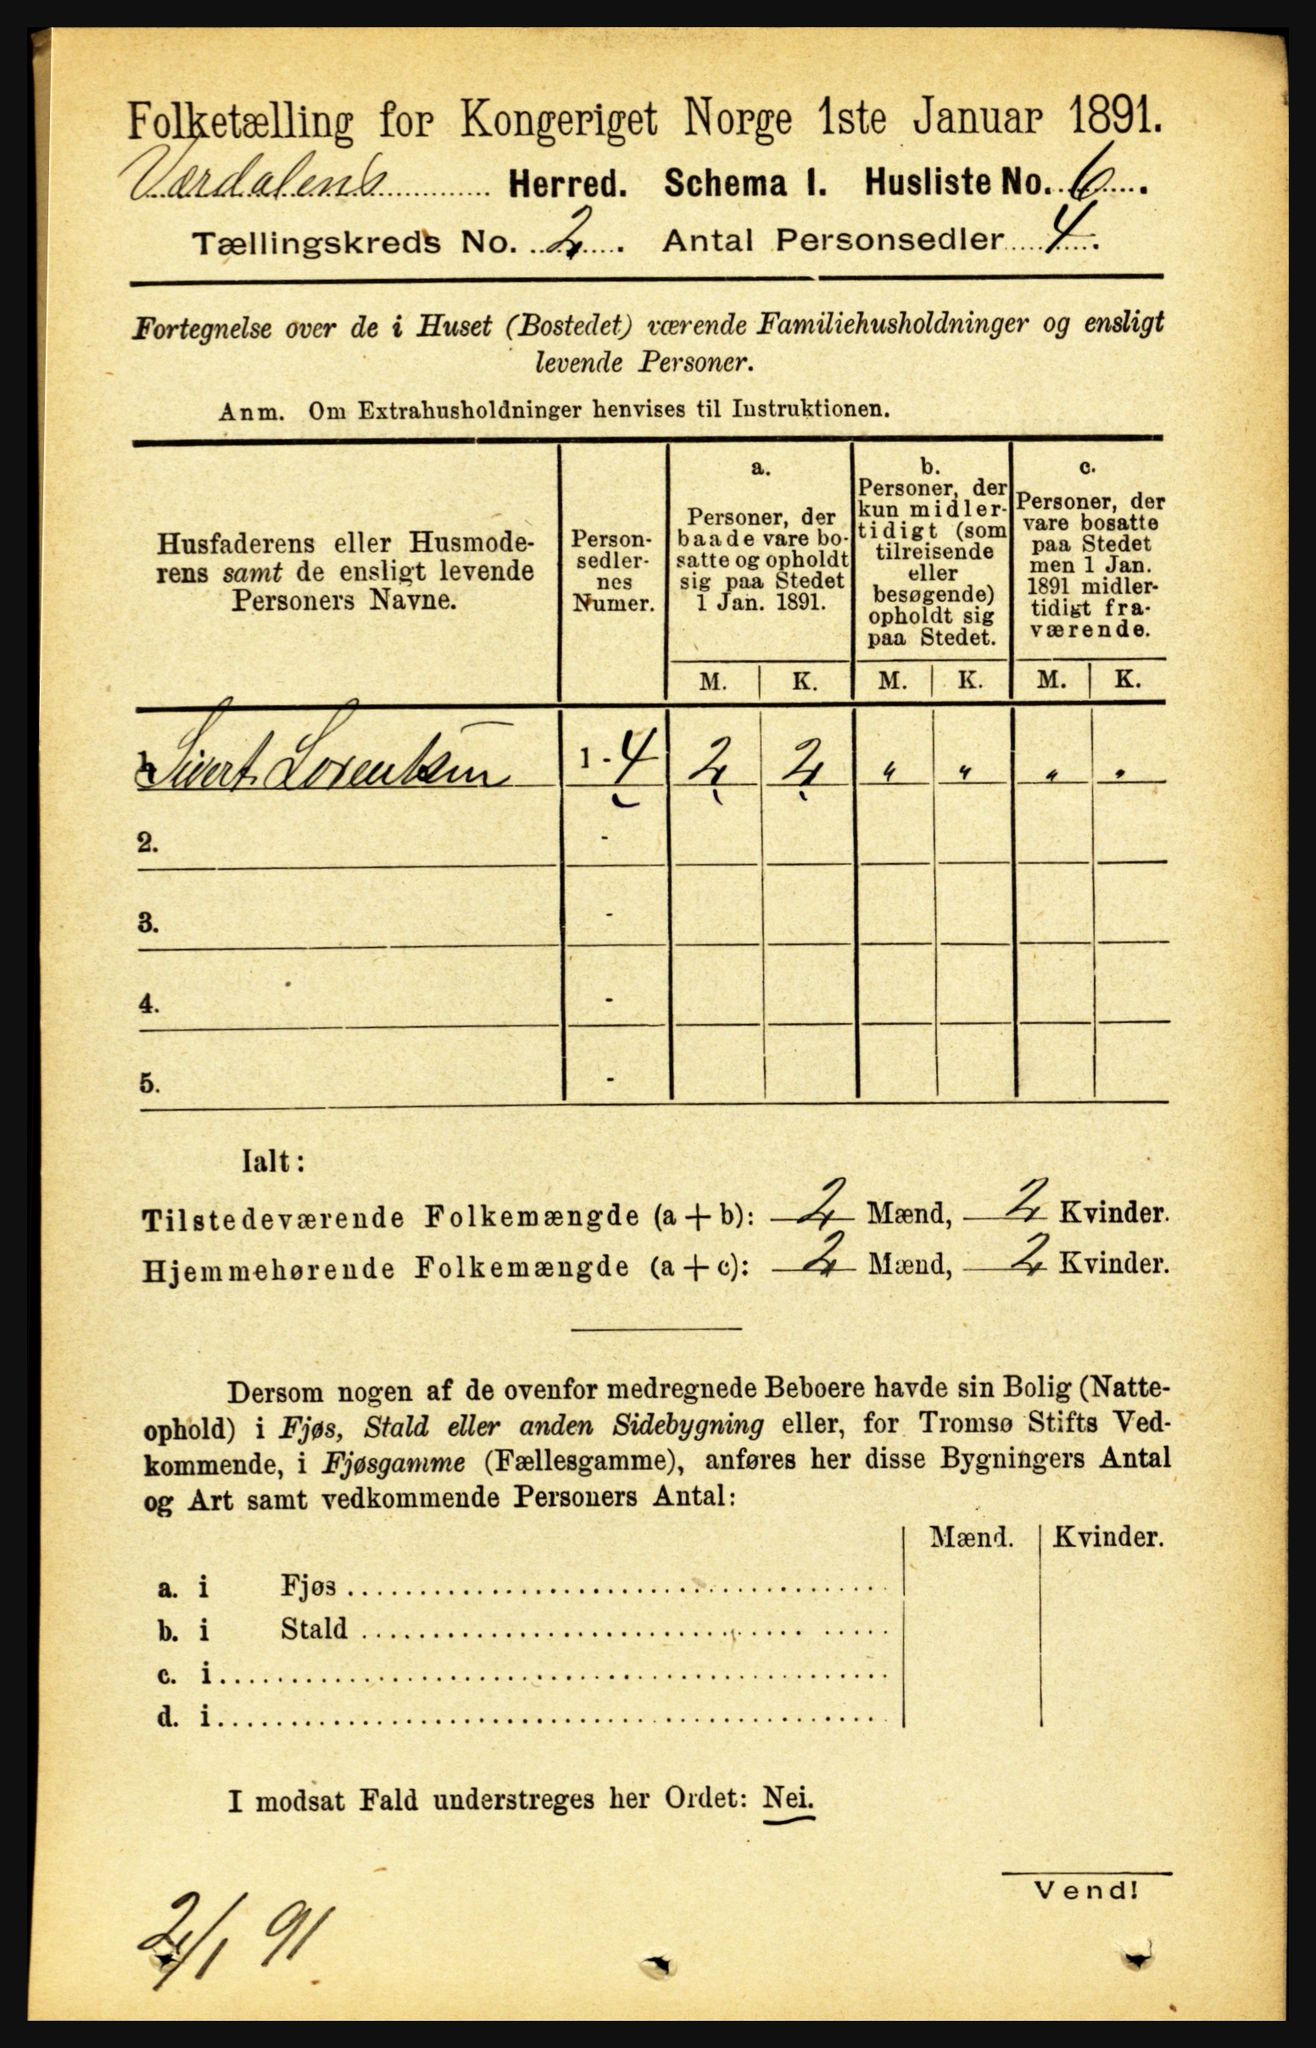 Folketælling for Kongeriget Norge 1ste Januar 1891.
Værdalens Herred. Schema I. Husliste No. 6.
Tællingskreds No. 2. Antal Personsedler 4.
Fortegnelse over de i Huset (Bostedet) værende Familiehusholdninger og ensligt
levende Personer.
Anm. Om Extrahusholdninger henvises til Instruktionen.
Husfaderens eller Husmode-
rens samt de ensligt levende
Personers Navne.
Person-
sedler-
nes
Numer.
a.
Personer, der
baade vare bo-
satte og opholdt
sig paa Stedet
1 Jan. 1891.
b.
Personer, der
kun midler-
tidigt (som
tilreisende
eller
besøgende)
opholdt sig
paa Stedet.
c.
Personer, der
vare bosatte
paa Stedet
men 1 Jan.
1891 midler-
tidigt fra-
værende.
M. K. M. K. M. K.
Sivert Lorentsen 1 - 4 2 2 " " " "
2. -
3. -
4. -
5. -
Ialt:
Tilstedeværende Folkemængde (a + b): 2 Mænd, 2 Kvinder.
Hjemmehørende Folkemængde (a + c): 2 Mænd, 2 Kvinder.
Dersom nogen af de ovenfor medregnede Beboere havde sin Bolig (Natte-
ophold) i Fjøs, Stald eller anden Sidebygning eller, for Tromsø Stifts Ved-
kommende, i Fjøsgamme (Fællesgamme), anføres her disse Bygningers Antal
og Art samt vedkommende Personers Antal:
Mænd. Kvinder.
a. i Fjøs
b. i Stald
c. i
d. i
I modsat Fald understreges her Ordet: Nei.
Vend!
2/1 91